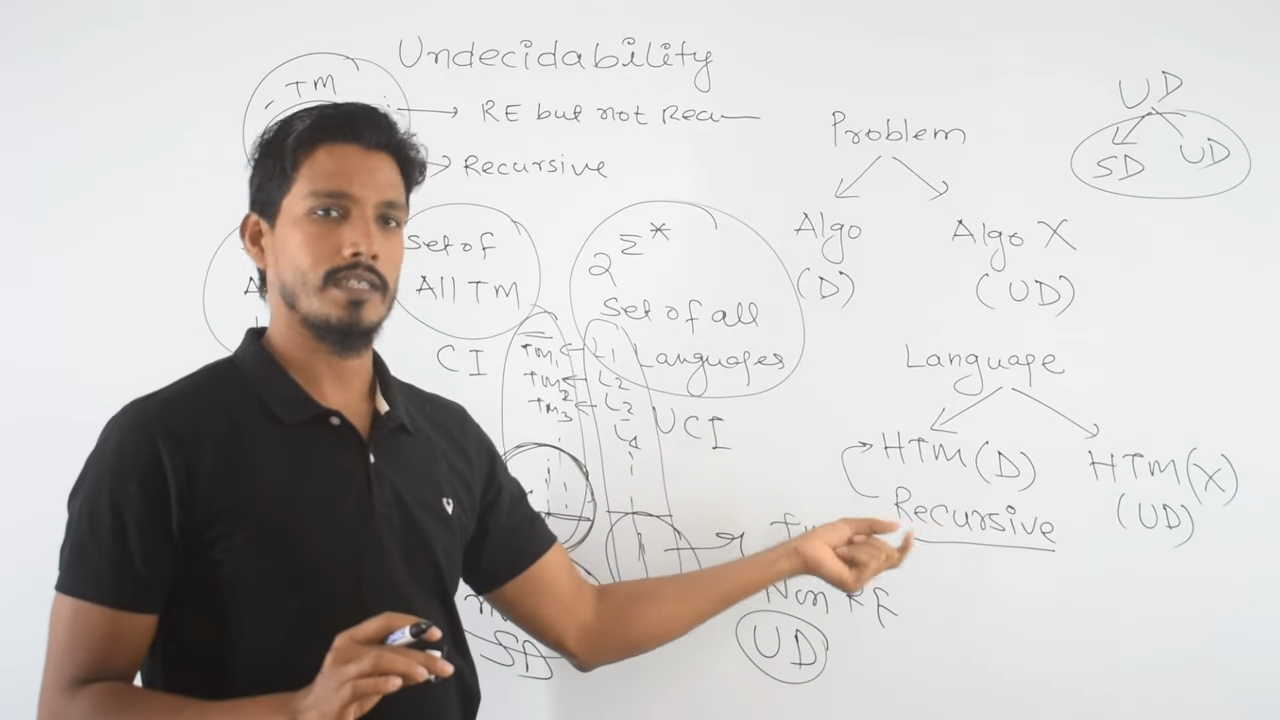 Undecidability
TM
RE but not Rec
Recursive
Set of
All TM
CI
2^Σ*
Set of all
Languages
UCI
TM1 L1
TM2 L2
TM3 L3
L4
Non RE
UD
SD
Problem
Algo
(D)
Algo X
(UD)
UD
SD UD
Language
HTM(D)
Recursive
HTM(X)
(UD)